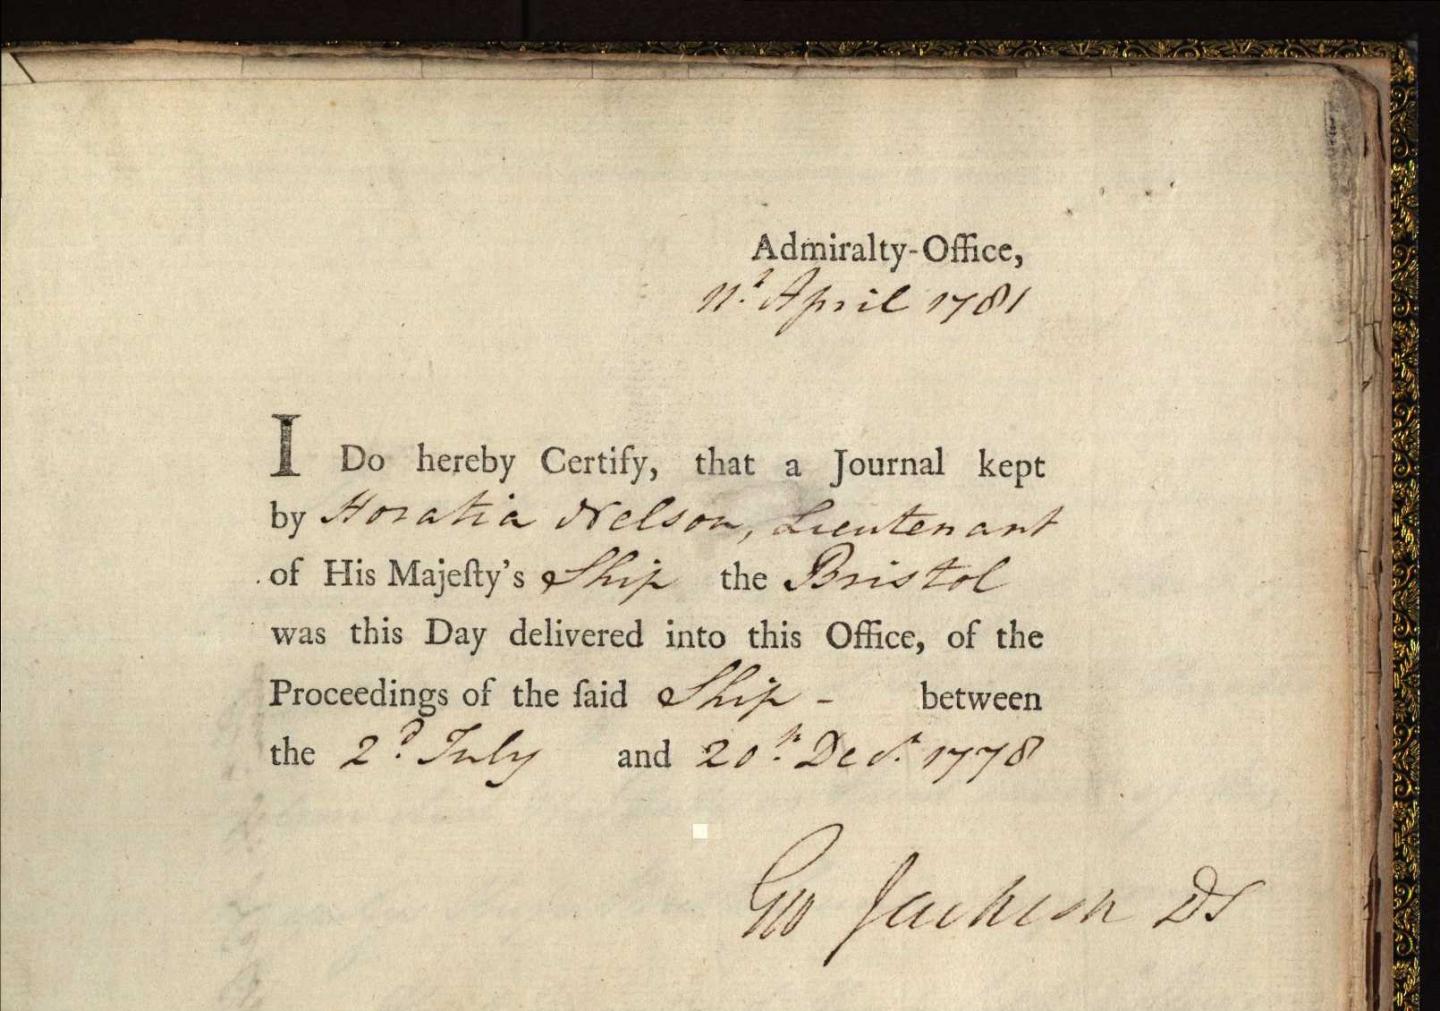 Admiralty-Office,
11.t April 1781
I Do hereby Certify, that a Journal kept
by Horatia Nelson, Lieutenant
of His Majeſty's Ship the Bristol
was this Day delivered into this Office, of the
Proceedings of the ſaid Ship - between
the 2.d July and 20.th Decr. 1778
Geo Jackson DS